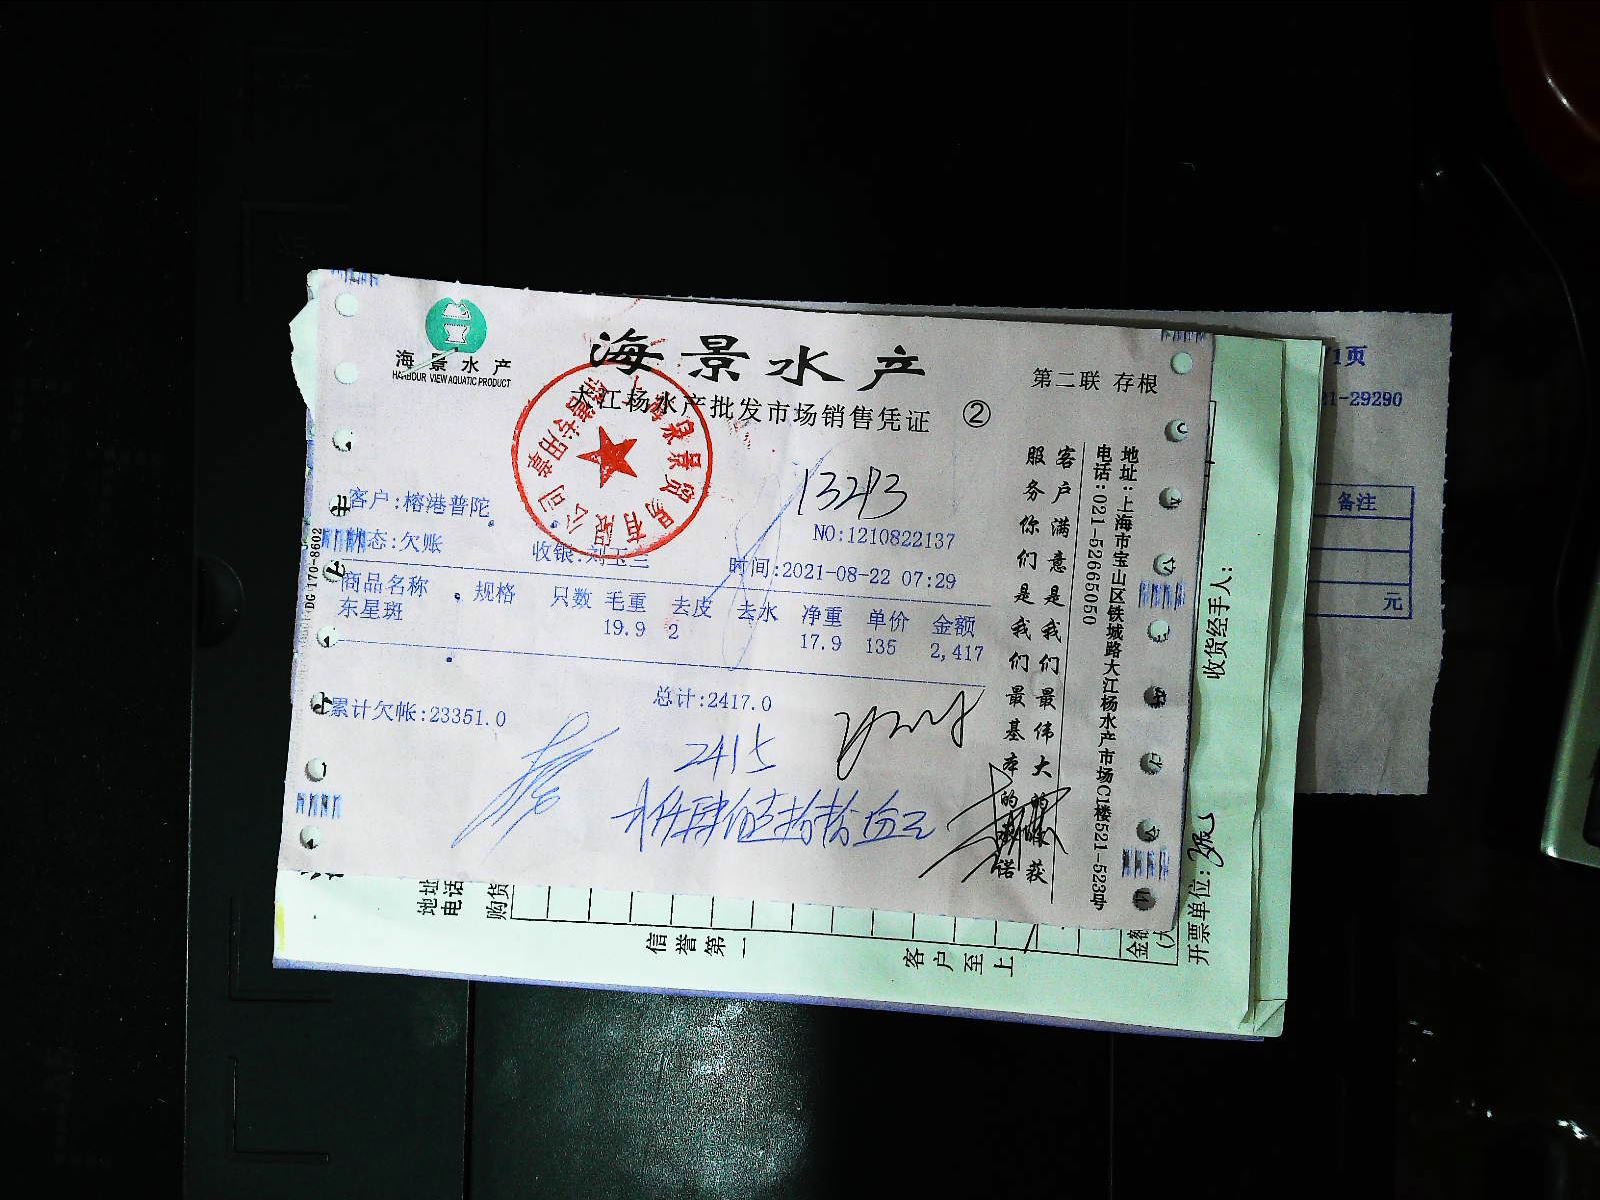 海景水产
HARBOUR VIEW AQUATIC PRODUCT
海景水产
大江杨水产批发市场销售凭证 ②
第二联 存根
13293
客户:榕港普陀
NO:1210822137
状态:欠账 收银:刘玉兰 时间:2021-08-22 07:29
商品名称 规格 只数 毛重 去皮 去水 净重 单价 金额
东星斑 19.9 2 17.9 135 2,417
总计:2417.0
累计欠帐:23351.0
2415
客户满意是我们最伟大的
服务你们是我们最基本的
地址:上海市宝山区铁城路大江杨水产市场C1楼521-523号
电话:021-52665050
DG 170-8602
1页
21-29290
备注
元
收货经手人:
开票单位:
地址
电话
购货
信誉第一
客户至上
金额